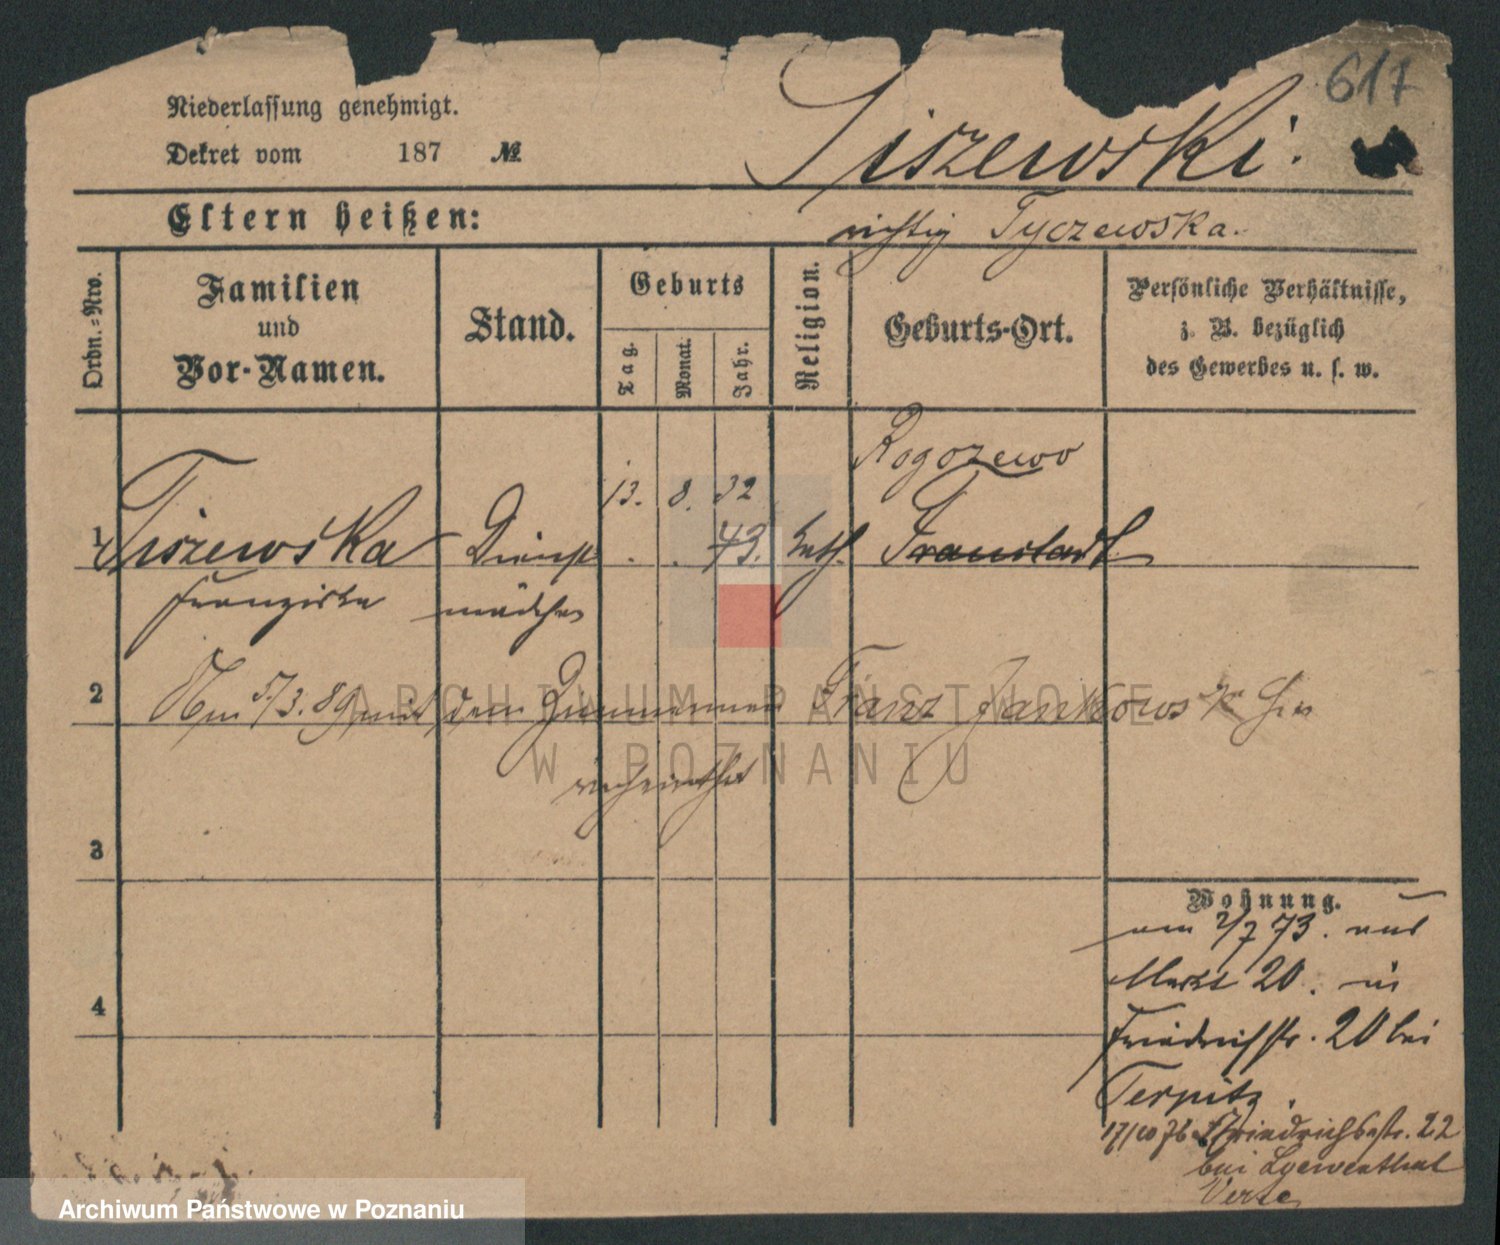 617
Niederlassung genehmigt.
Dekret vom 187 №
Tiszewski.
Eltern heißen:
richtig Tyczewska.
Ordn.-Nro.
Familien
und
Vor-Namen.
Stand.
Geburts
Tag.
Monat.
Jahr.
Religion.
Geburts-Ort.
Persönliche Verhältnisse,
z. B. bezüglich
des Gewerbes u. s. w.
Rogozewo
13. 8. 32
1 Tiszewska Dienst . . 43. kath. Fraustadt
Franziska mädchen
2 Am 5/3. 89 mit dem Zimmermann Franz Jankowski
verheirathet
3
4
Wohnung.
am 2/7 73. aus
Markt 20. in
Friedrichstr. 20 bei
Terpitz.
17/10 76 Friedrichsstr. 22
bei Loewenthal
Verte
ARCHIWUM PAŃSTWOWE
W POZNANIU
Archiwum Państwowe w Poznaniu